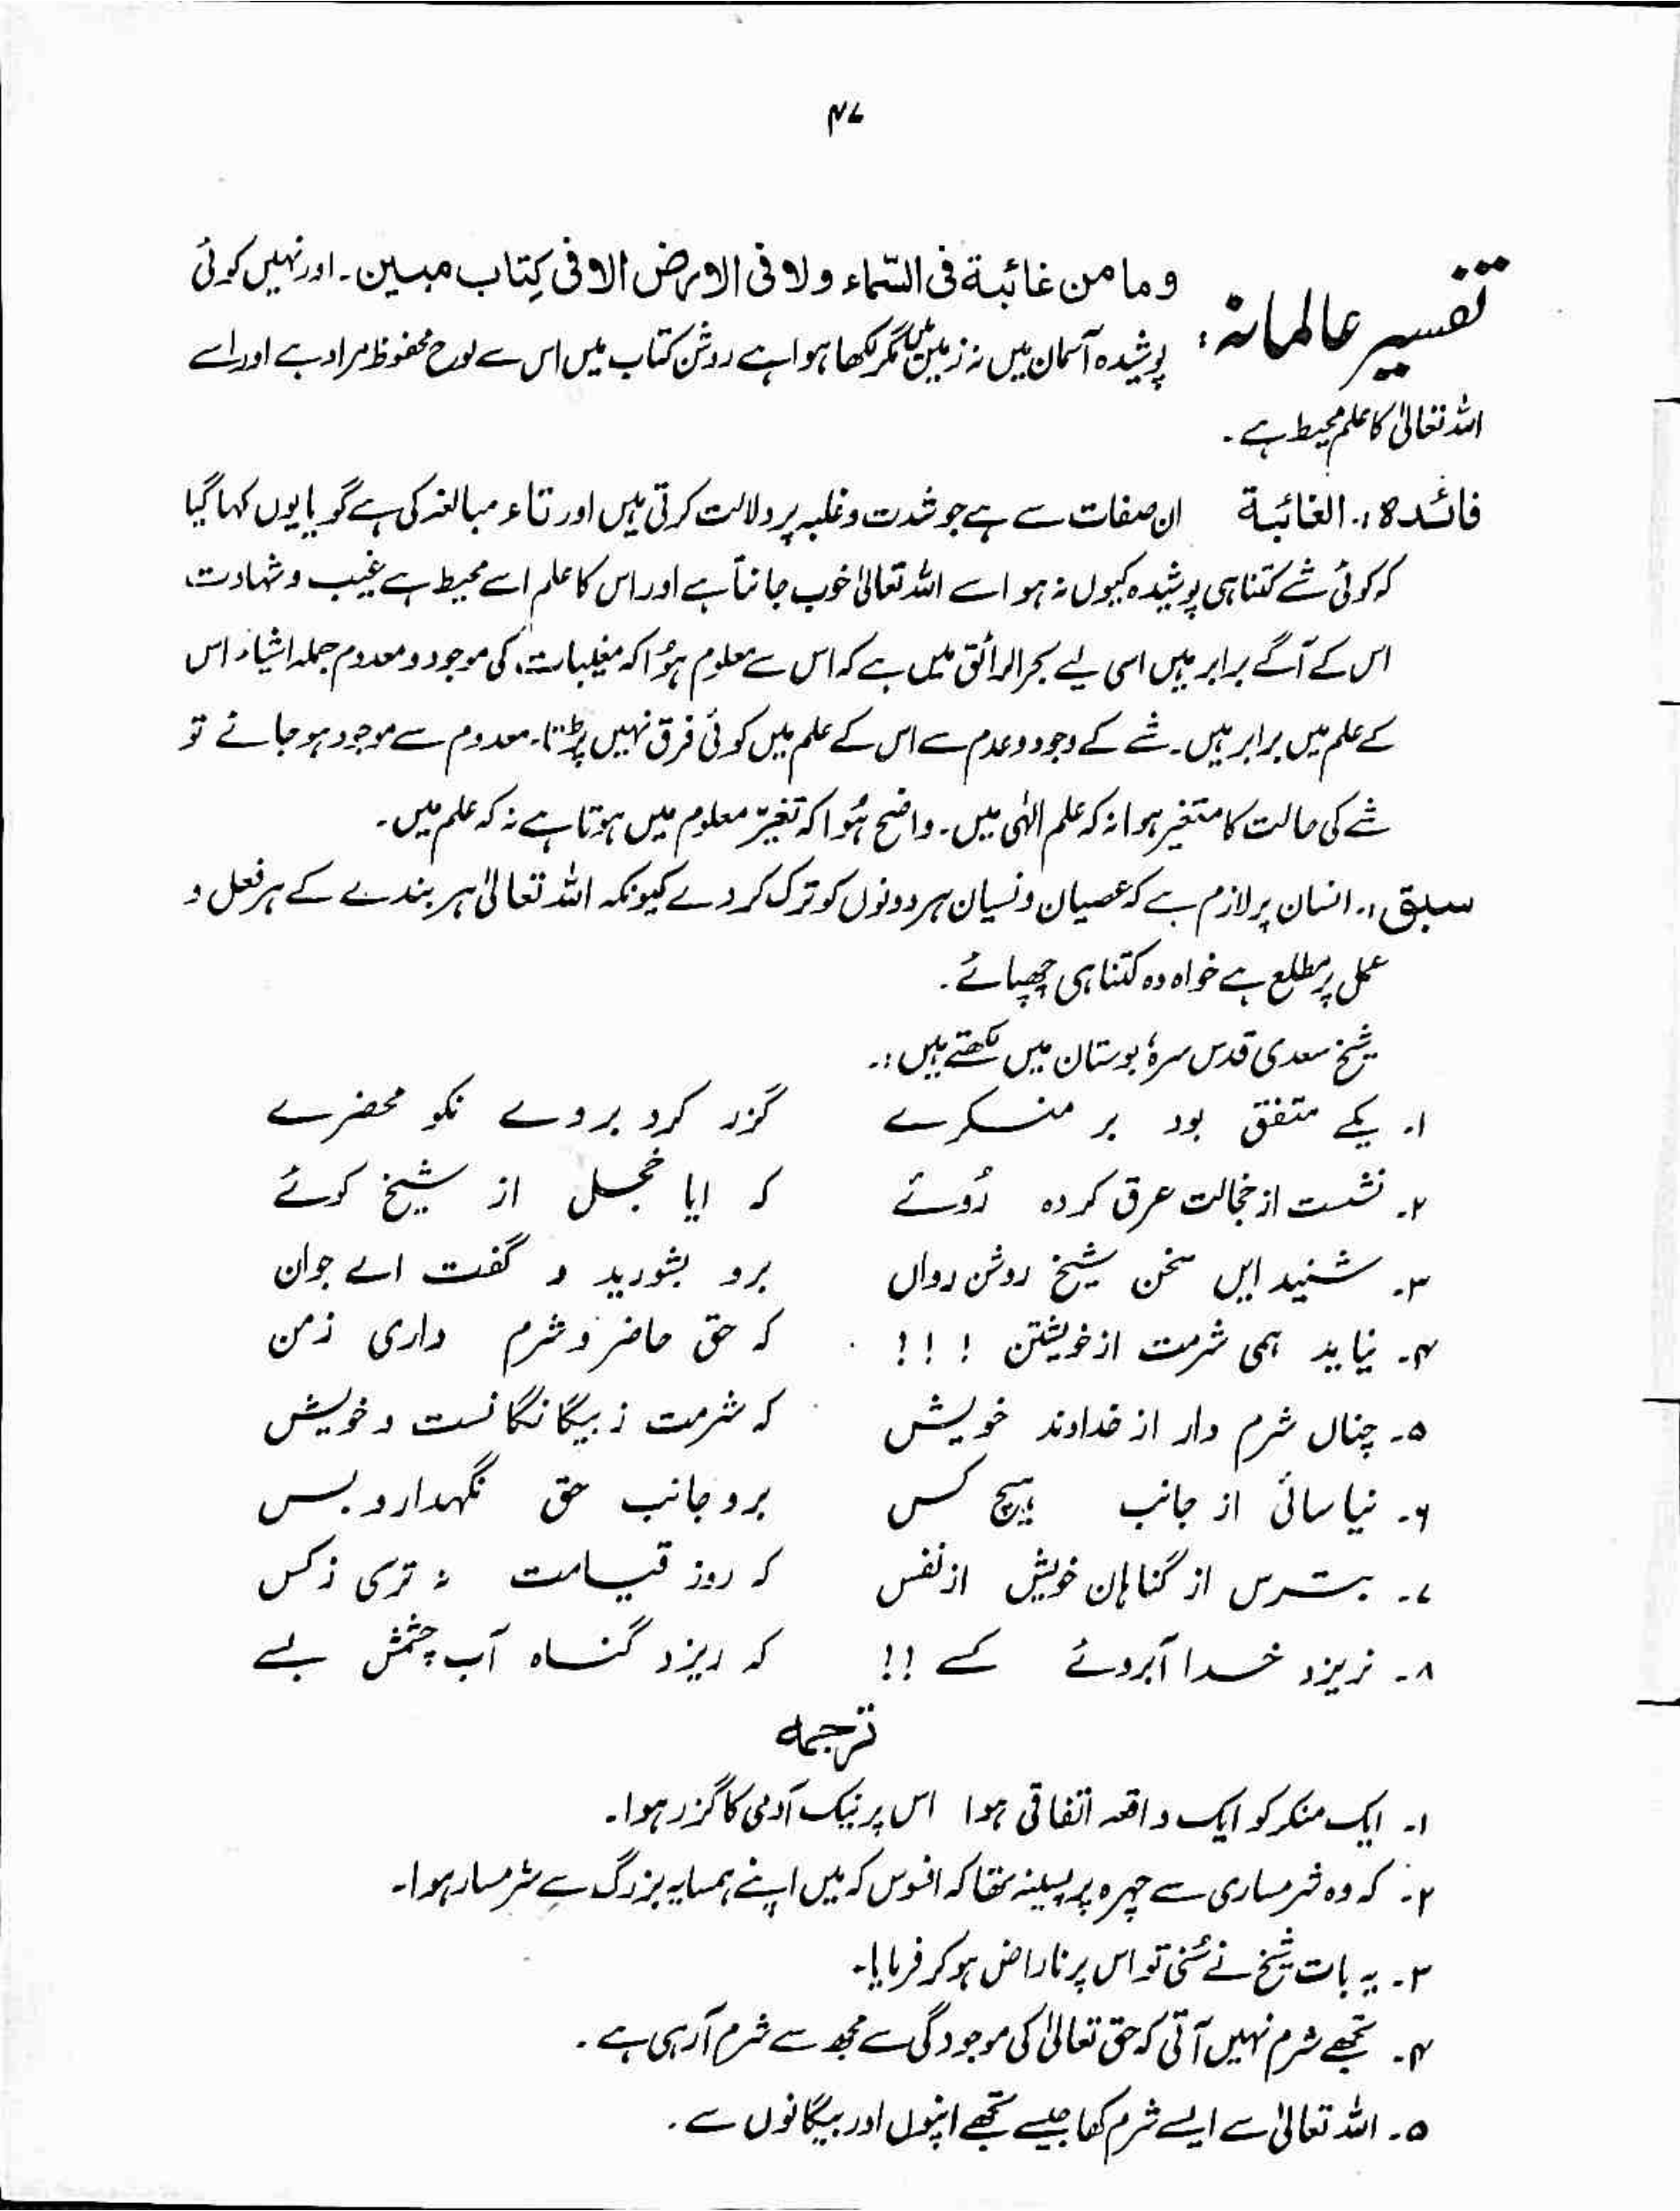 ۴۷
تفسیر عالمانہ: وما من غائبة فی السّماء ولا فی الارض الا فی کِتاب مبین۔ اور نہیں کوئی
پوشیدہ آسمان میں نہ زمین میں مگر لکھا ہوا ہے روشن کتاب میں اس سے لوح محفوظ مراد ہے اور اسے
اللہ تعالیٰ کا علم محیط ہے۔
فائدہ:۔ الغائبة ان صفات سے ہے جو شدت و غلبہ پر دلالت کرتی ہیں اور تاء مبالغہ کی ہے گویا یوں کہا گیا
کہ کوئی شے کتنا ہی پوشیدہ کیوں نہ ہو اسے اللہ تعالیٰ خوب جانتا ہے اور اس کا علم اسے محیط ہے غیب و شہادت
اس کے آگے برابر ہیں اسی لیے بحر الرائق میں ہے کہ اس سے معلوم ہوُا کہ مغیبات کی موجود و معدوم جملہ اشیاء اس
کے علم میں برابر ہیں۔ شے کے وجود و عدم سے اس کے علم میں کوئی فرق نہیں پڑتا۔ معدوم سے موجود ہو جائے تو
شے کی حالت کا متغیر ہوا نہ کہ علم الٰہی میں۔ واضح ہُوا کہ تغیرّ معلوم میں ہوتا ہے نہ کہ علم میں۔
سبق:۔ انسان پر لازم ہے کہ عصیان و نسیان ہر دونوں کو ترک کر دے کیونکہ اللہ تعالیٰ ہر بندے کے ہر فعل و
عمل پر مطلع ہے خواہ وہ کتنا ہی چھپائے۔
شیخ سعدی قدس سرہٗ بوستان میں لکھتے ہیں:۔
۱۔ یکے متفق بود بر منکرے گزر کرد بروے نکو محضرے
۲۔ نشست از خجالت عرق کردہ رُوئے کہ ایا خجل از شیخ کوئے
۳۔ شنید ایں سخن شیخ روشن رواں برو بشورید و گفت اے جوان
۴۔ نیاید ہمی شرمت از خویشتن !!! کہ حق حاضر و شرم داری زمن
۵۔ چناں شرم دار از خداوند خویش کہ شرمت ز بیگانگانست و خویش
۶۔ نیاسائی از جانب ہیچ کس برو جانب حق نگہدار و بس
۷۔ بترس از گناہان خویش از نفس کہ روز قیامت نہ تری زکس
۸۔ نریزد خدا آبروئے کسے !! کہ ریزد گناہ آب چشمش بسے
ترجمہ
۱۔ ایک منکر کو ایک واقعہ اتفاقی ہوا اس پر نیک آدمی کا گزر ہوا۔
۲۔ کہ وہ شرمساری سے چہرہ پر پسینہ تھا کہ افسوس کہ میں اپنے ہمسایہ بزرگ سے شرمسار ہوا۔
۳۔ یہ بات شیخ نے سُنی تو اس پر ناراض ہو کر فرمایا۔
۴۔ تجھے شرم نہیں آتی کہ حق تعالیٰ کی موجودگی سے مجھ سے شرم آ رہی ہے۔
۵۔ اللہ تعالیٰ سے ایسے شرم کھا جیسے تجھے اپنوں اور بیگانوں سے۔